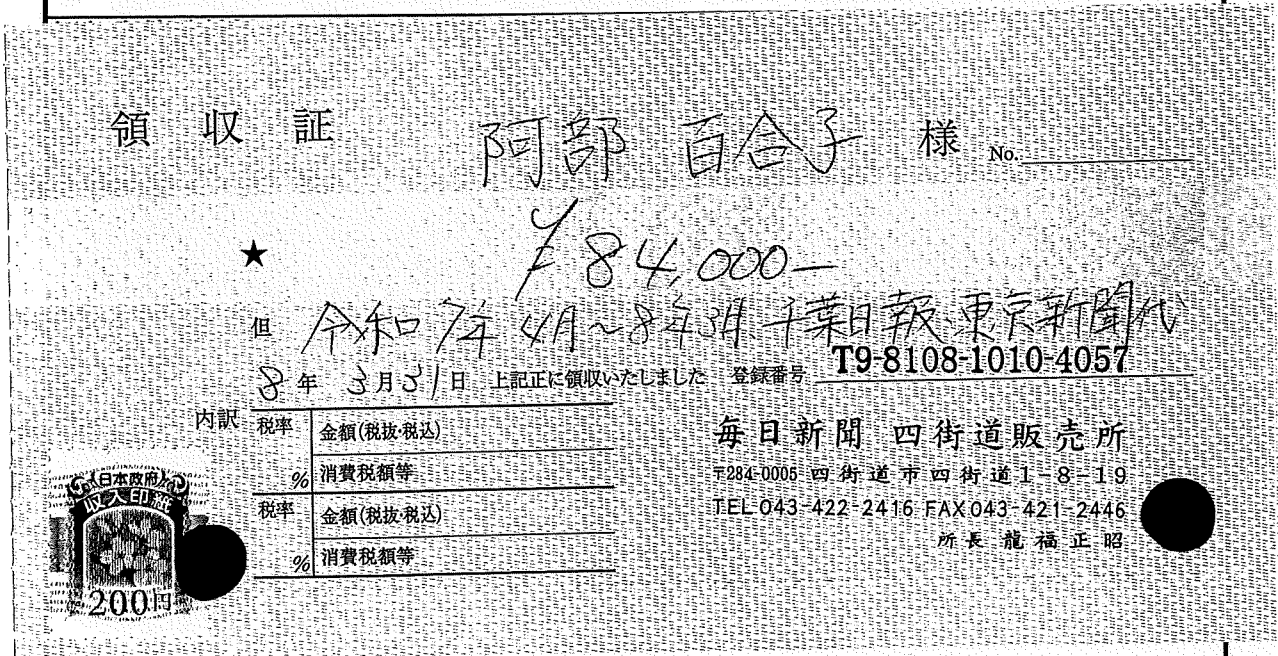 領収証 阿部 百合子 様 No.
★ ¥84,000-
但 令和7年4月~8年3月 千葉日報、東京新聞代
8年3月31日 上記正に領収いたしました 登録番号 T9-8108-1010-4057
内訳 税率 % 金額(税抜・税込)
消費税額等
税率 % 金額(税抜・税込)
消費税額等
毎日新聞 四街道販売所
〒284-0005 四街道市四街道1-8-19
TEL 043-422-2416 FAX 043-421-2446
所長 龍福正昭
日本政府
収入印紙
200円